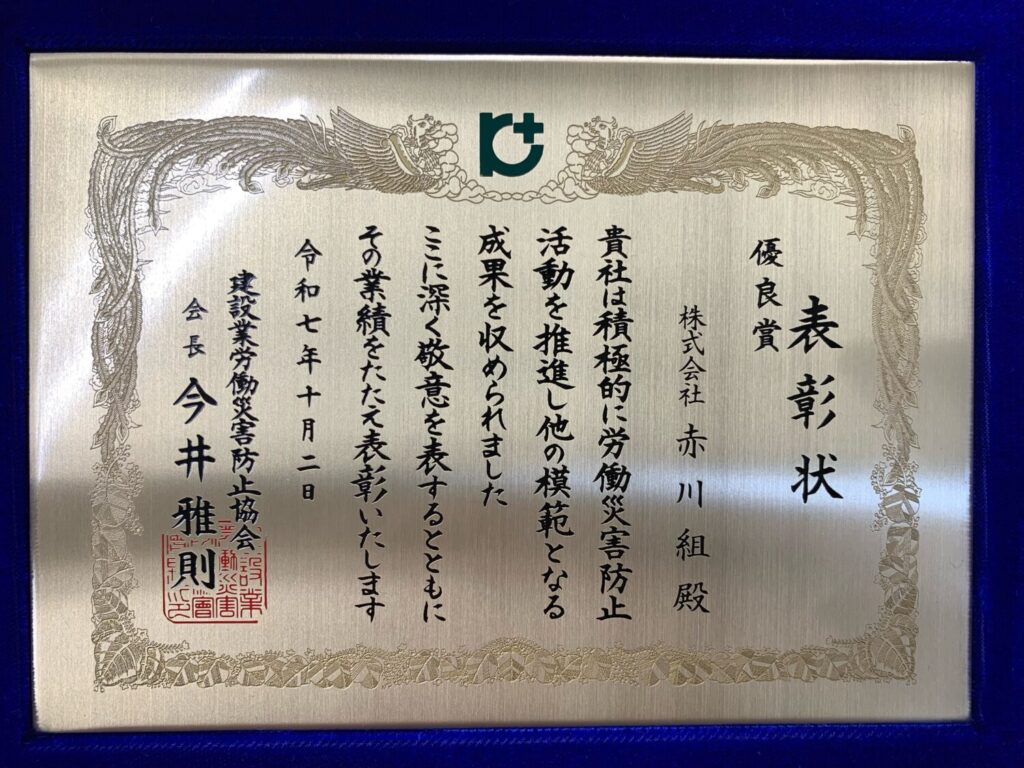 表彰状
優良賞
株式会社 赤川組殿
貴社は積極的に労働災害防止
活動を推進し他の模範となる
成果を収められました
ここに深く敬意を表するとともに
その業績をたたえ表彰いたします
令和七年十月二日
建設業労働災害防止協会
会長 今井雅則